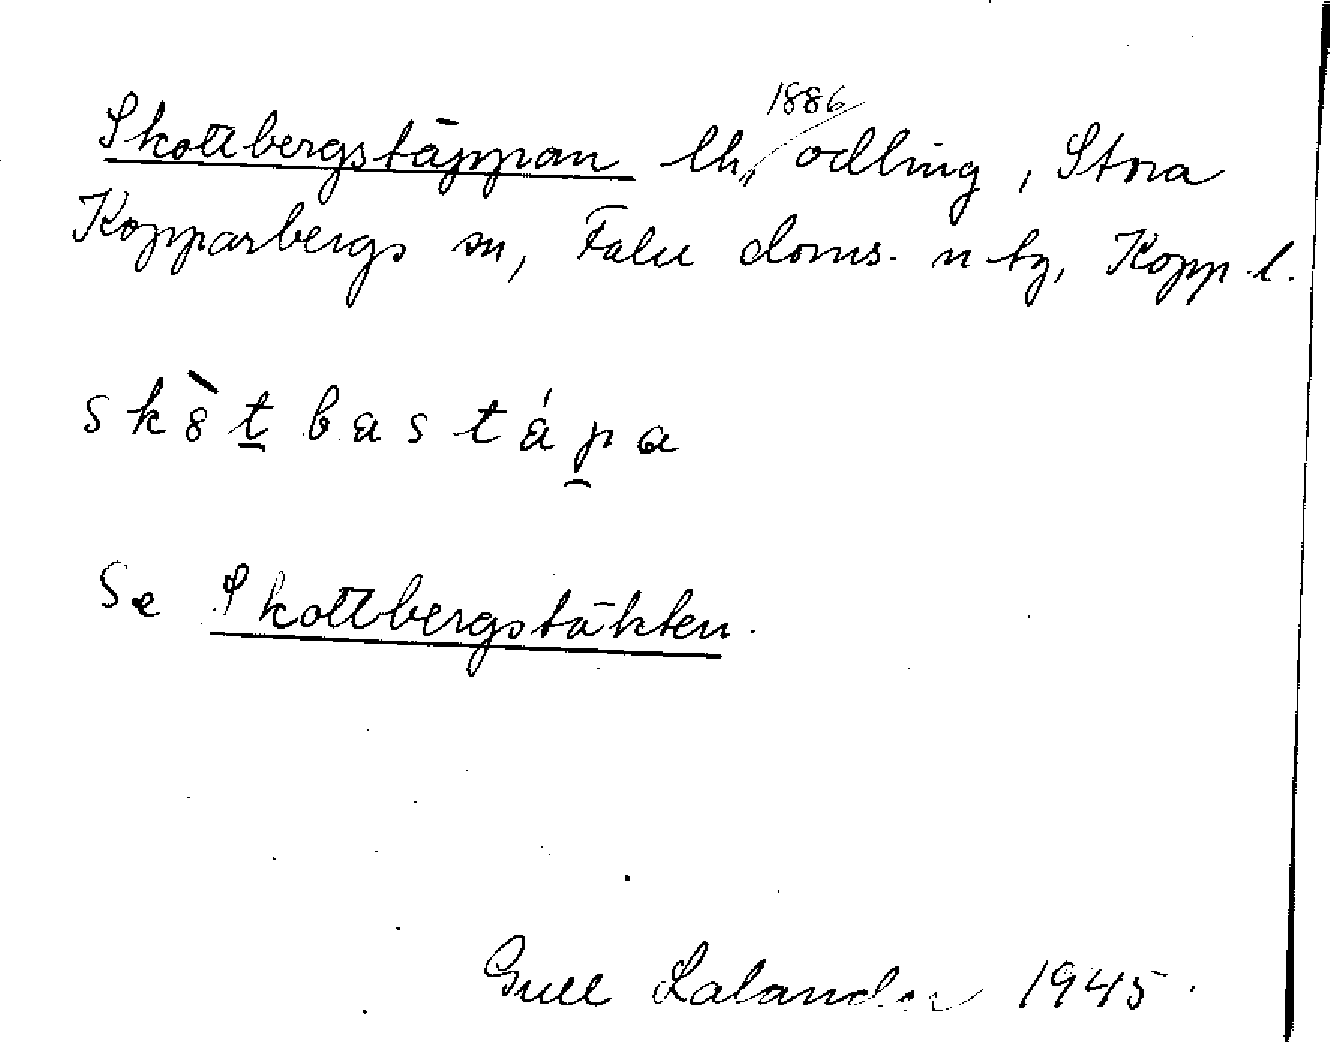 Skottbergstäppan lh, 1886 odling, Stora
Kopparbergs sn, Falu doms. n tg, Kopp. l.
skò̀t̠bastáp̠a
Se Skottbergstäkten.
Gull Lalander 1945.